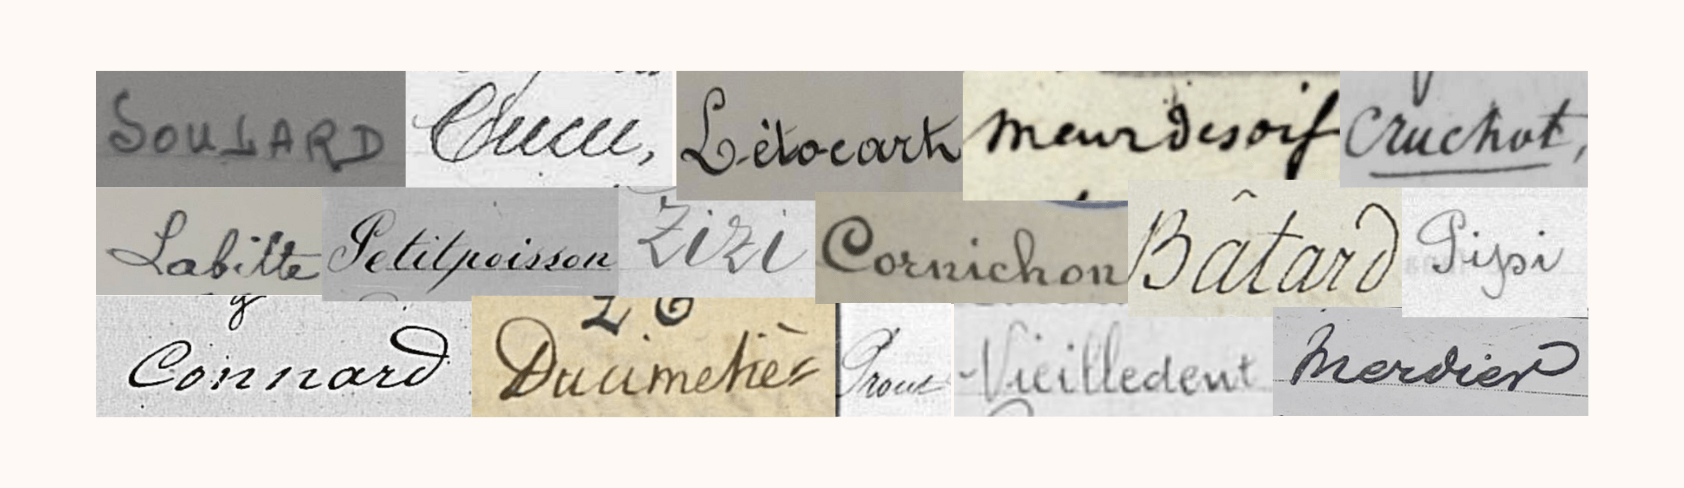 SOULARD Cucu, Létocart Meurdesoif Cruchot,
Labitte Petitpoisson Zizi Cornichon Bâtard Pipi
Connard Ducimetière Prout Vieilledent Merdier